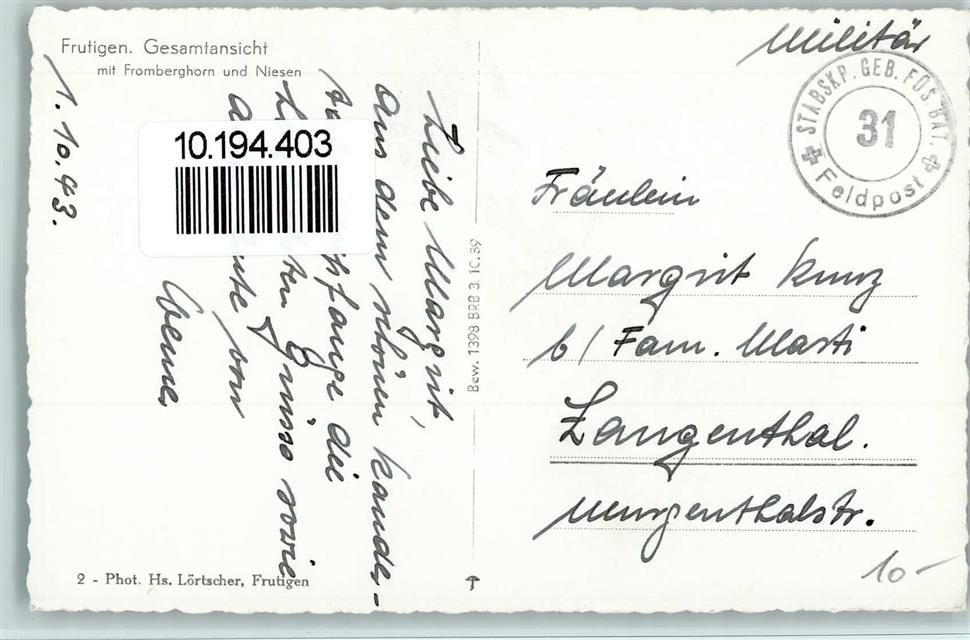 Frutigen. Gesamtansicht
mit Fromberghorn und Niesen
1.10.43.
Liebe Margrit,
Aus dem schönen Kander-
empfange die
Grüsse sowie
von
10.194.403
2 - Phot. Hs. Lörtscher, Frutigen
Bew. 1398 BRB 3. IC. 39
Militär
STABSKP. GEB. FÜS. BAT.
31
Feldpost
Fräulein
Margrit Kunz
b/ Fam. Marti
Langenthal.
Murgenthalstr.
10-